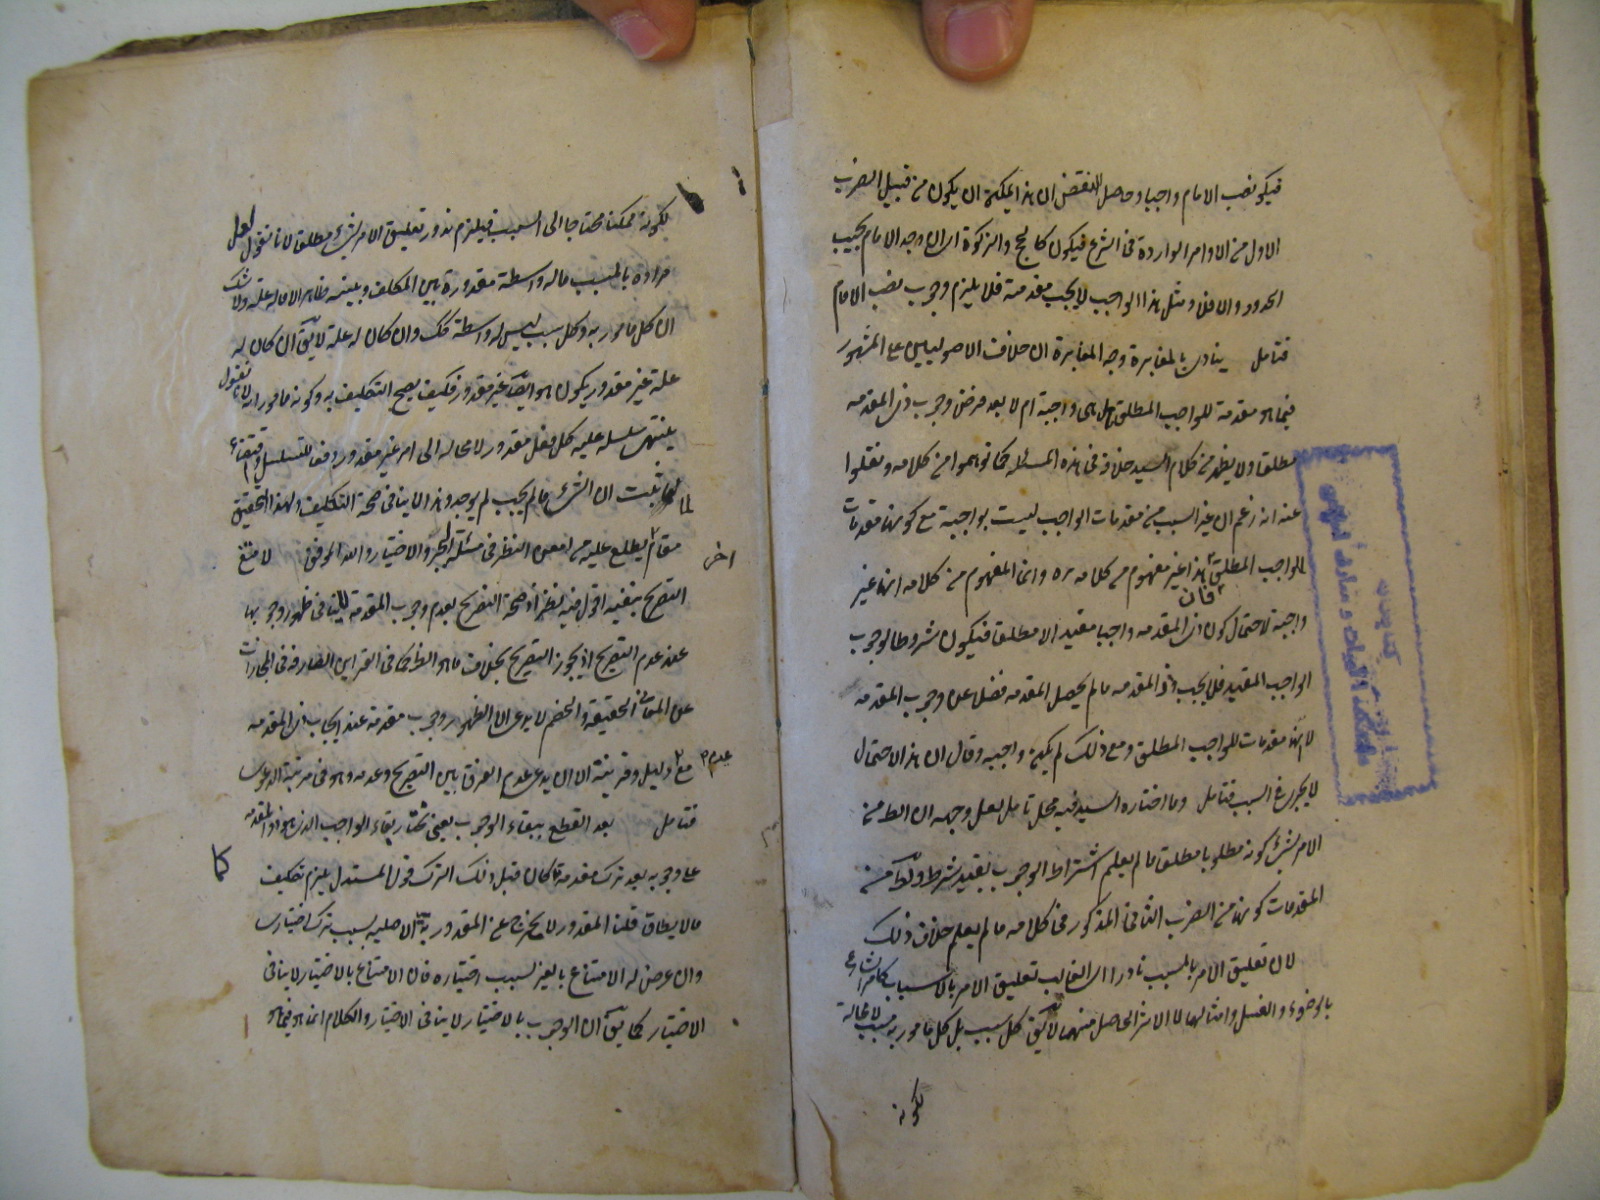 فيكون نصب الامام واجبا وحاصل النقض ان هذا يمكن ان يكون من قبيل الضرب
الاول من الاوامر الواردة فى الشرع فيكون كالحج والزكوة اى ان وجد الامام يجب
الحدود والا فلا ومثل هذا الواجب لا يجب مقدمته فلا يلزم وجوب نصب الامام
فتامل ينادى بالمغايرة وجه المغايرة ان خلاف الاصوليين على المشهور
فيما هو مقدمة للواجب المطلق هل هى واجبة ام لا بعد فرض وجوب ذى المقدمه
مطلقا ولا يظهر من كلام السيد خلافه فى هذه المسئله كما توهموا من كلامه ونقلوا
عنه انه زعم ان غير السبب من مقدمات الواجب ليست بواجبة مع كونها مقدمات
للواجب المطلق فان هذا غير مفهوم من كلامه ره وانما المفهوم من كلامه انها غير
واجبة لاحتمال كون ذى المقدمه واجبا مقيدا لا مطلقا فيكون شروطا لوجوب
الواجب المقيد فلا يجب ذو المقدمه ما لم يحصل المقدمه فضلا عن وجوب المقدمه
لا انها مقدمات للواجب المطلق ومع ذلك لم يكن واجبه وقال ان هذا الاحتمال
لا يجرى فى السبب فتامل وما اختاره السيد فيه محل تامل لعل وجهه ان الظ من
الامر بشئ كونه مطلوبا مطلقا ما لم يعلم اشتراط الوجوب بقيد شرط و من
المقدمات كونها من الضرب الثانى المذكور فى كلامه ما لم يعلم خلاف ذلك
لان تعليق الامر بالمسبب نادر اى الغالب تعليق الامر بالاسباب كامر الشارع
بالوضوء والغسل وامثالهما لا الاثر الحاصل منهما لا يق كل سبب بل كل مامور به مسبب لا محالة
لكونه
لكونه ممكنا محتاجا الى السبب فيلزم ندور تعليق الامر بشئ مطلق لانا نقول لعل
مراده بالمسبب ماله واسطة مقدورة بين المكلف وبينه ظاهر الاماله علة ولا شك
ان كل مامور به وكل سبب ليس له واسطة كك وان كان له علة لا يق ان كان له
علة غير مقدور يكون هو ايضا غير مقدور فكيف يصح التكليف به وكونه مامورا به لانا نقول
ينتهى سلسله علية كل فعل مقدور لا محاله الى امر غير مقدور دفعا للتسلسل
لما ثبت ان الشئ ما لم يجب لم يوجد وهذا لا ينافى صحة التكليف ولهذا التحقيق
مقام اخر يطلع عليه من امعن النظر فى مسئلة الجبر والاختيار والله الموفق لامتنع
التصريح بنفيه اقول فيه نظر اذ صحة التصريح بعدم وجوب المقدمة لا ينافى ظهور وجوبها
عند عدم التصريح اذ يجوز التصريح بخلاف ما هو الظ كما فى القراين الصارفه فى المجازات
عن المعانى الحقيقة والخصم لا يدعى الا الظهور وجوب مقدمة عند ايجاب ذى المقدمه
مع عدم دليل وقرينة الا ان يدعى عدم الفرق بين التصريح وعدمه وهو فى مرتبة الدعوى
فتامل بعد القطع ببقاء الوجوب يعنى نختار بقاء الواجب الذى هو ذو المقدمه
على وجوبه بعد ترك مقدمة كما كان قبل ذلك الترك قول المستدل يلزم تكليف
ما لا يطاق قلنا المقدور لا يخرج عن المقدورية الاصليه بسبب ترك اختيارى
وان عرض له الامتناع بالغير بسبب اختياره فان الامتناع بالاختيار لا ينافى
الاختيار كما يق ان الوجوب بالاختيار لا ينافى الاختيار والكلام انما هو فيما هو